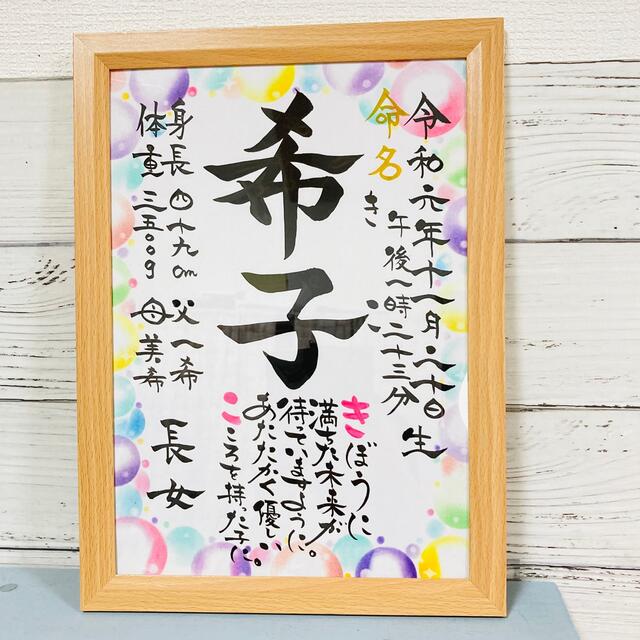 令和元年十一月二十日生
午後一時二十三分
命名
きこ
希子
きぼうに
満ちた未来が
待っていますように。
あたたかく優しい
こころを持った子に。
身長四十九cm
体重三五〇〇g
父一希
母美希
長女